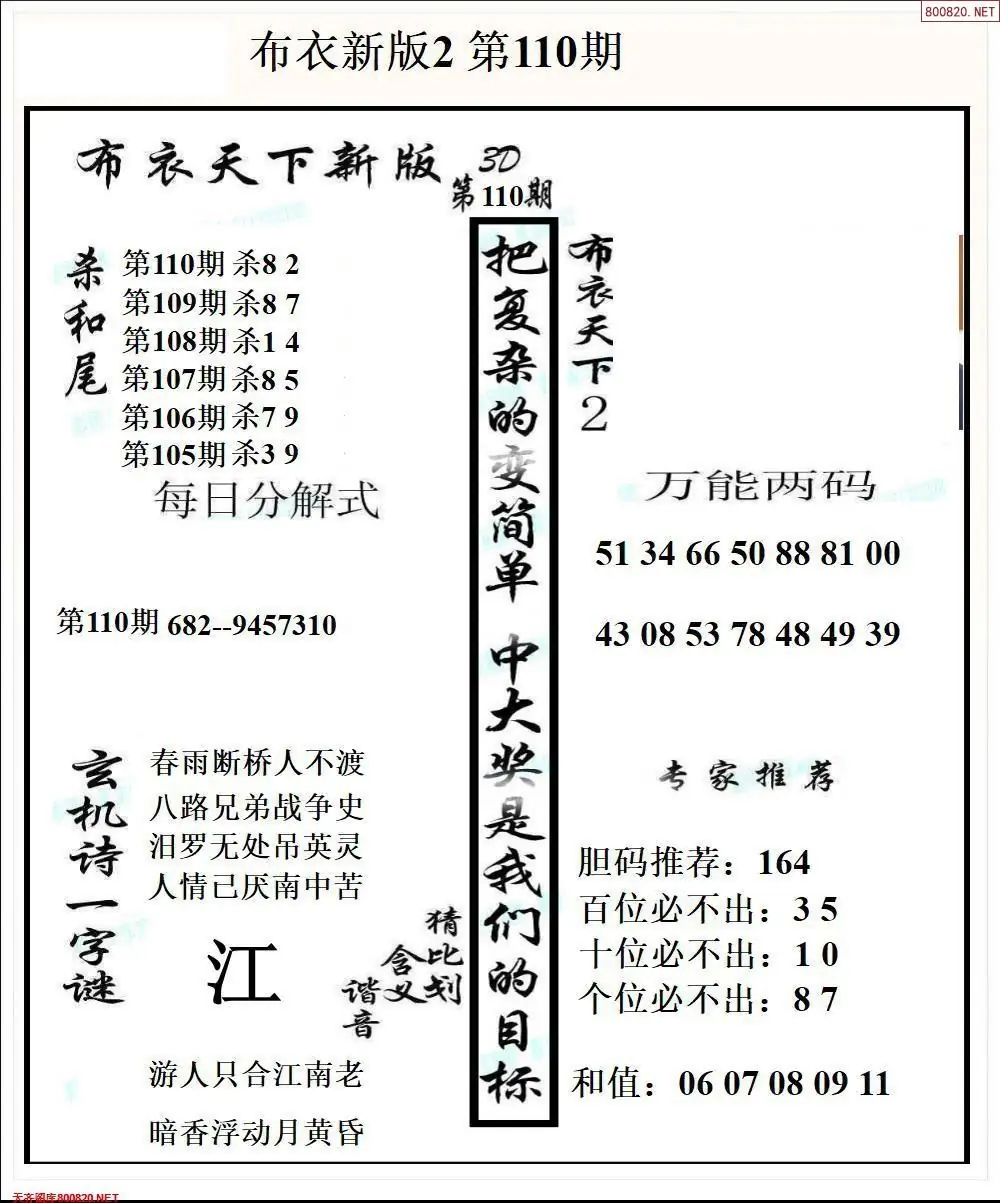 800820.NET
布衣新版2 第110期
布衣天下新版
3D
第110期
杀和尾
第110期 杀8 2
第109期 杀8 7
第108期 杀1 4
第107期 杀8 5
第106期 杀7 9
第105期 杀3 9
每日分解式
第110期 682--9457310
玄机诗一字谜
春雨断桥人不渡
八路兄弟战争史
汨罗无处吊英灵
人情已厌南中苦
江
猜比划
含义
谐音
游人只合江南老
暗香浮动月黄昏
把复杂的变简单 中大奖是我们的目标
布衣天下2
万能两码
51 34 66 50 88 81 00
43 08 53 78 48 49 39
专家推荐
胆码推荐：164
百位必不出：3 5
十位必不出：1 0
个位必不出：8 7
和值：06 07 08 09 11
天齐图库800820.NET